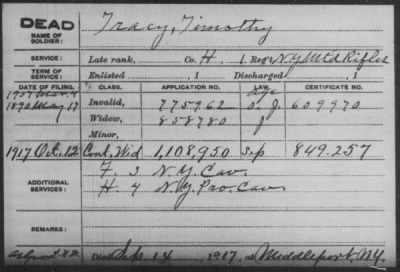 DEAD
NAME OF SOLDIER: Tracy, Timothy
SERVICE: Late rank, Co. H. 1. Reg't N.Y. Mtd Rifles
TERM OF SERVICE: Enlisted , 1 Discharged , 1
DATE OF FILING. CLASS. APPLICATION NO. LAW. CERTIFICATE NO.
age
1890 May 17 Invalid, 775962 609970
Widow, 858780
Minor,
1917 Oct. 12 Cont. Wid 1,108,950 Sep 849.257
ADDITIONAL SERVICES: F. 3 N.Y. Cav.
H. 4 N.Y. Pro. Cav
REMARKS:
Died Sep. 14, 1917, at Middleport, N.Y.